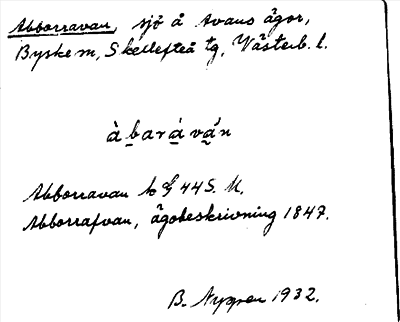 Abborravan, sjö å Avans ägor,
Byske sn, Skellefteå tg, Västerb. l.
àbaráván
Abborravan 44 S. U.
Abborrafvan, ägobeskrivning 1847.
B. Nygren 1932.